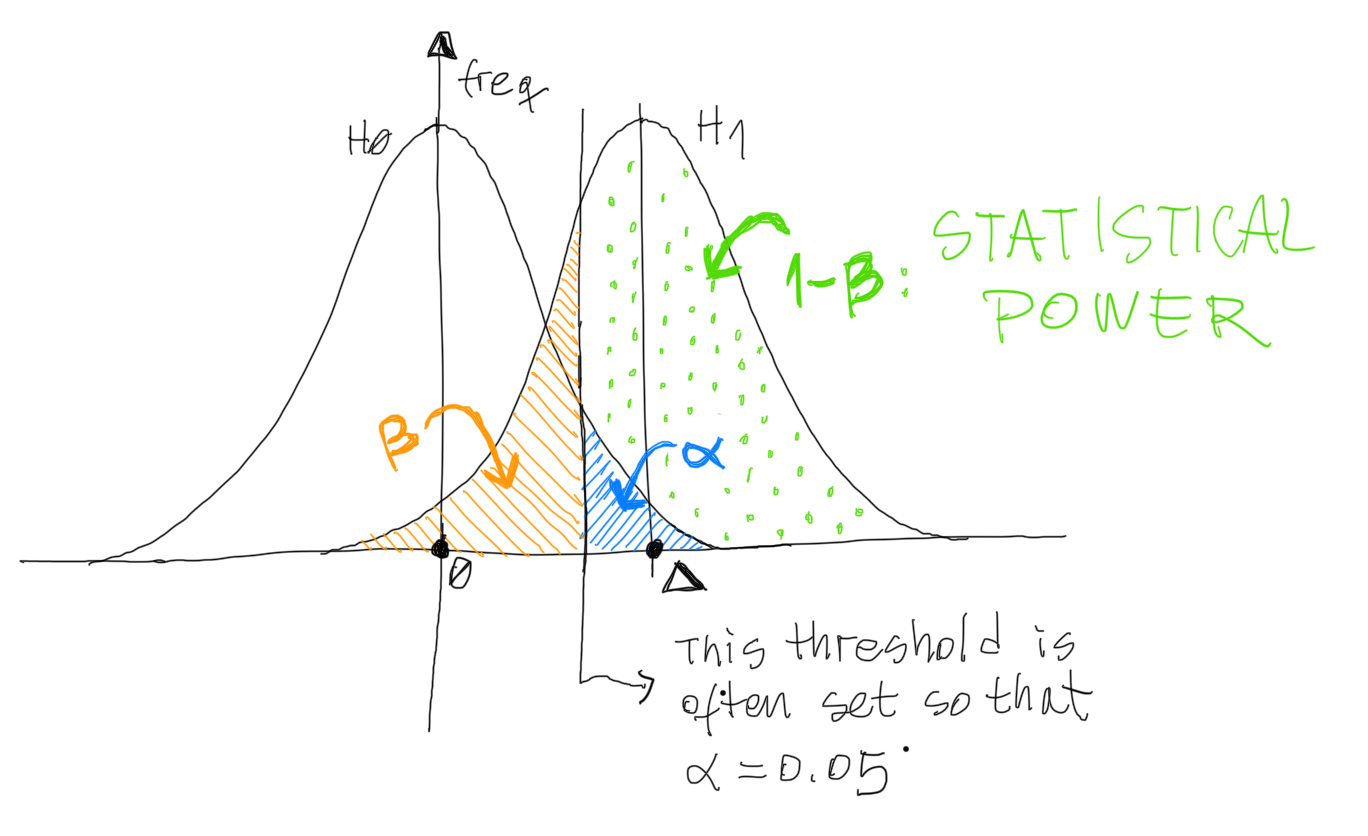 freq
H0
H1
STATISTICAL
1-β:
POWER
β
α
0
Δ
This threshold is
often set so that
α = 0.05